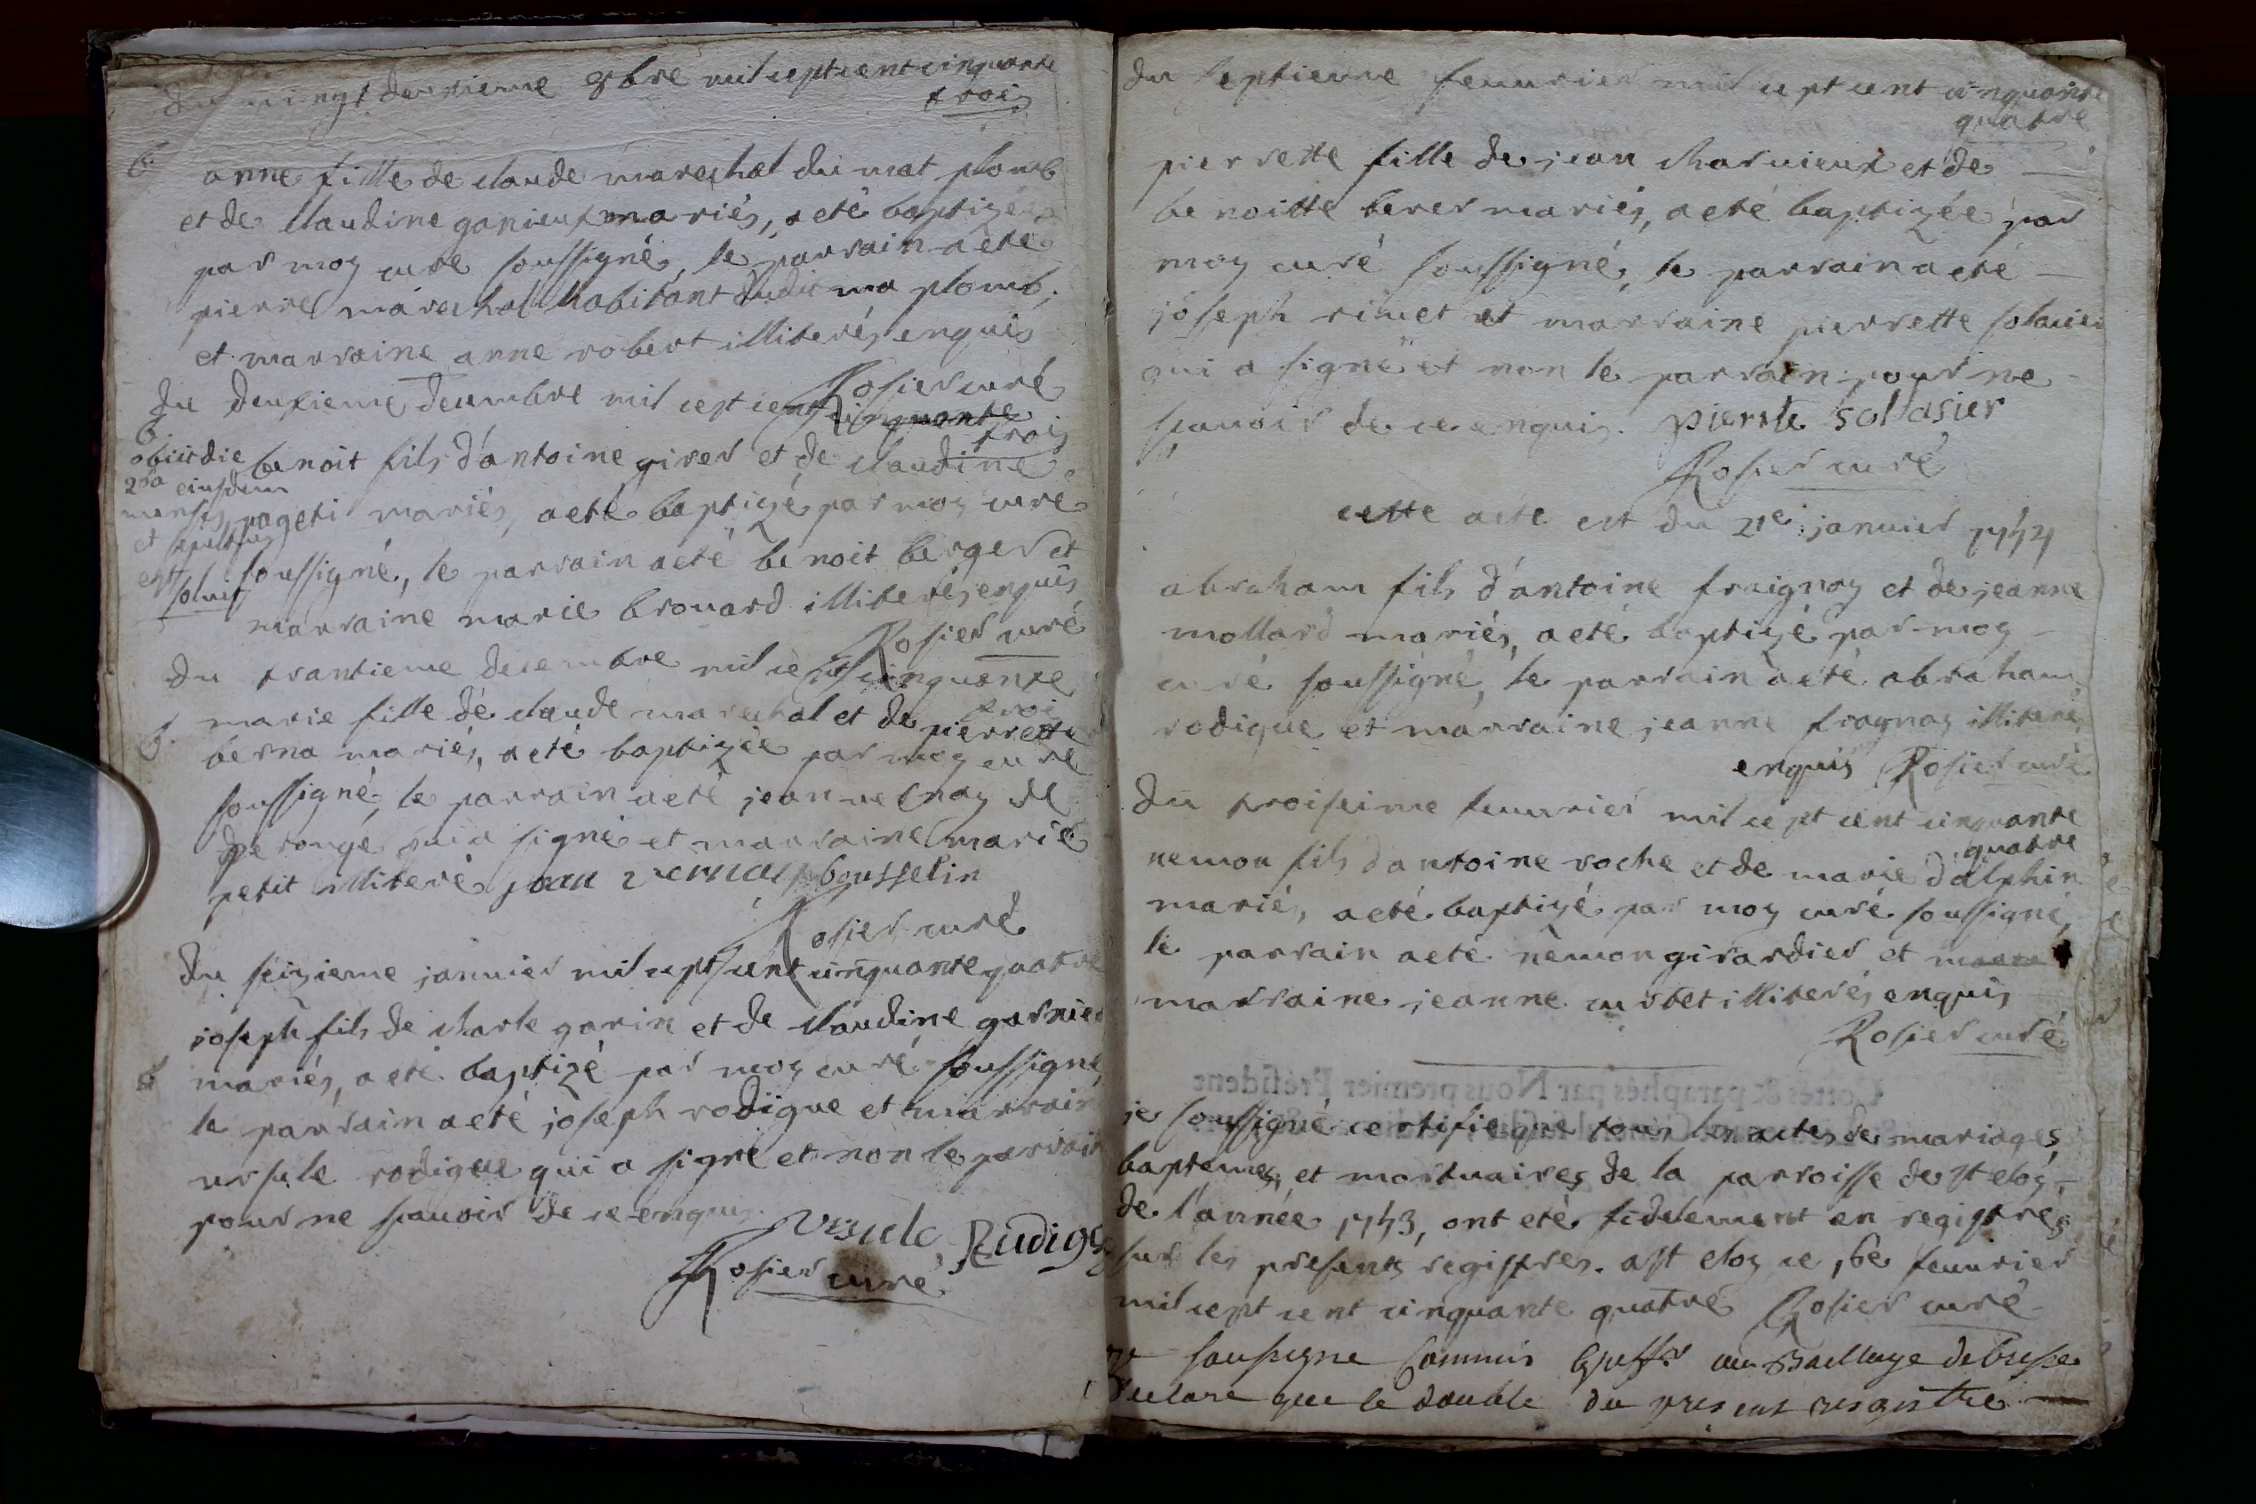 du vingt deuxieme 9bre mil sept cent cinquante
trois
B
anne fille de claude mareschal du mat plomb
et de claudine ganieux mariés, a eté baptizée
par moy curé soussigné, le parrain a eté
pierre mareschal habitant dudit ma plomb,
et marraine anne robert illiterés enquis
Rosier curé
du deuxieme decembre mil sept cent cinquante
trois
B.
obiit die
2da eiusdem
mensis
et sepultus
est
benoit fils d'antoine girer et de claudine
pageti mariés, a eté baptizé par moy curé
soussigné, le parrain a eté benoit berger et
marraine marie brouard illiterés enquis
Rosier curé
du trantieme decembre mil sept cinquante
troi
B.
marie fille de claude mareschal et de pierrette
berna mariés, a eté baptizée par moy curé
soussigné, le parrain a eté jean vernay de
perouge qui a signé et marraine marie
petit illiteré jean vernay bousselin
Rosier curé
du seizieme janvier mil sept cent cinquante quatre
joseph fils de charle garin et de claudine garnier
B
mariés, a eté baptizé par moy curé soussigné,
le parrain a eté joseph rodigue et marrain
ursule rodigue qui a signé et non le parrain
pour ne scauoir de ce enquis.
Vrsule Rudigue
Rosier curé
du septieme feuurier mil sept cent cinquante
quatre
pierrette fille de jean charuieux et de
benoitte berer mariés, a eté baptizée par
moy curé soussigné, le parrain a eté
joseph riuet et marraine pierrette solasier
qui a signé et non le parrain pour ne
scauoir de ce enquis. pierrete solasier
Rosier curé
cette acte est du 21e janvier 1754
abraham fils d'antoine fraignay et de jeanne
mollard mariés, a eté baptizé par moy
curé soussigné, le parrain a eté abraham
rodigue et marraine jeanne fragnay illiterés
enquis Rosier curé
du troisieme feuurier mil sept cent cinquante
quatre
nemon fils d'antoine roche et de marie dalphin
mariés, a eté baptizé par moy curé soussigné,
le parrain a eté nemon girardier et
marraine jeanne curtet illiterés enquis
Rosier curé
je soussigné certifie que tous les actes de mariages,
baptemes, et mortuaires de la parroisse de st eloy,
de l'année 1753, ont eté fidelement en registres
sur les presents registres. a st eloy ce 16e feuurier
mil sept cent cinquante quatre Rosier curé
Je soussigne Commis Greffr au Bailliage de bresse
declare que le double du present registre